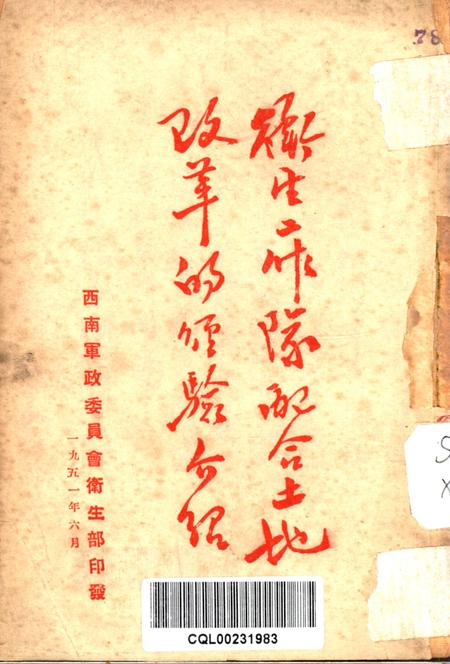 78
衛生工作隊配合土地
改革的經驗介紹
西南軍政委員會衛生部印發
一九五一年六月
CQL00231983